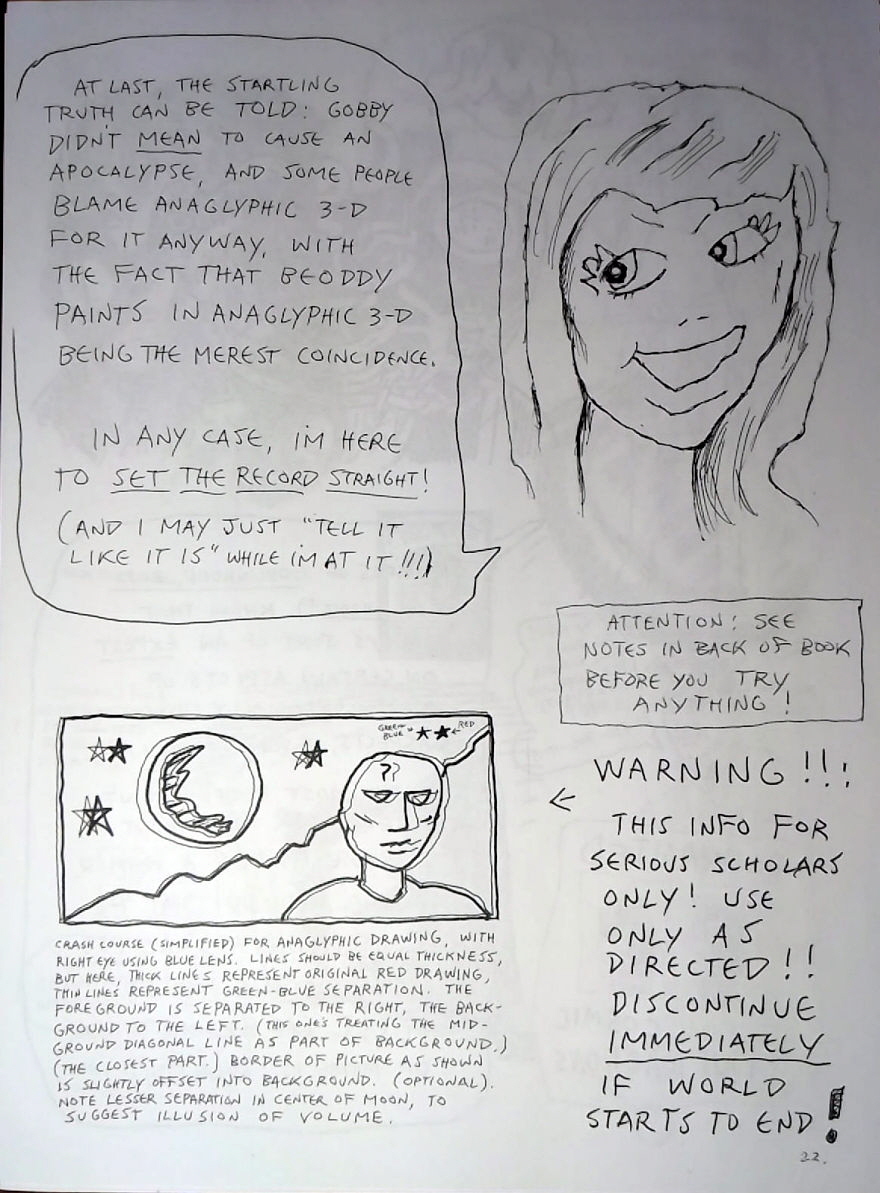 AT LAST, THE STARTLING
TRUTH CAN BE TOLD: GOBBY
DIDN'T MEAN TO CAUSE AN
APOCALYPSE, AND SOME PEOPLE
BLAME ANAGLYPHIC 3-D
FOR IT ANYWAY, WITH
THE FACT THAT BEODDY
PAINTS IN ANAGLYPHIC 3-D
BEING THE MEREST COINCIDENCE.
IN ANY CASE, I'M HERE
TO SET THE RECORD STRAIGHT!
(AND I MAY JUST "TELL IT
LIKE IT IS" WHILE I'M AT IT!!!)
ATTENTION: SEE
NOTES IN BACK OF BOOK
BEFORE YOU TRY
ANYTHING!
GREEN-
BLUE
RED
??
WARNING!!!
THIS INFO FOR
SERIOUS SCHOLARS
ONLY! USE
ONLY AS
DIRECTED!!
DISCONTINUE
IMMEDIATELY
IF WORLD
STARTS TO END!
CRASH COURSE (SIMPLIFIED) FOR ANAGLYPHIC DRAWING, WITH
RIGHT EYE USING BLUE LENS. LINES SHOULD BE EQUAL THICKNESS,
BUT HERE, THICK LINES REPRESENT ORIGINAL RED DRAWING,
THIN LINES REPRESENT GREEN-BLUE SEPARATION. THE
FOREGROUND IS SEPARATED TO THE RIGHT, THE BACK-
GROUND TO THE LEFT. (THIS ONE'S TREATING THE MID-
GROUND DIAGONAL LINE AS PART OF BACKGROUND.)
(THE CLOSEST PART.) BORDER OF PICTURE AS SHOWN
IS SLIGHTLY OFFSET INTO BACKGROUND. (OPTIONAL).
NOTE LESSER SEPARATION IN CENTER OF MOON, TO
SUGGEST ILLUSION OF VOLUME.
22.